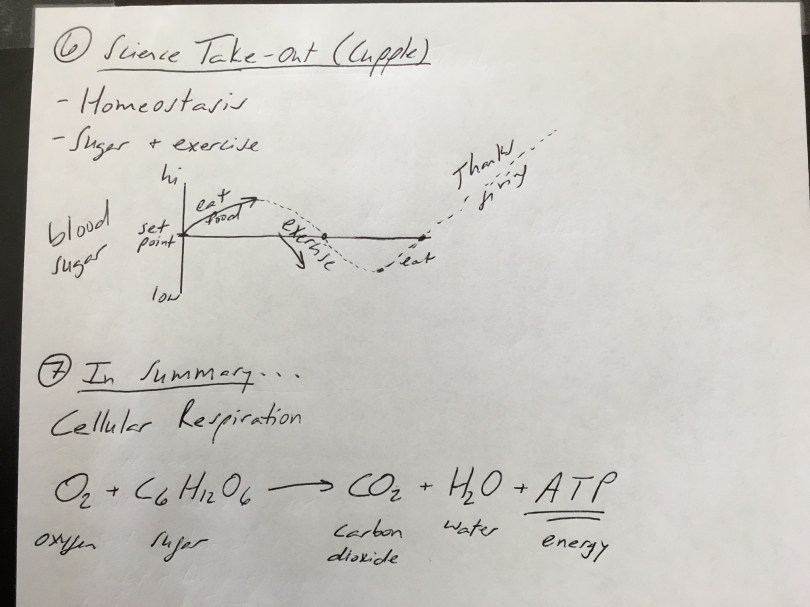 ⑥ Science Take-Out (Cupple)
- Homeostasis
- Sugar + exercise
hi
blood
sugar
set
point
low
eat
food
exercise
eat
Thanks
giving
⑦ In Summary...
Cellular Respiration
O₂ + C₆H₁₂O₆ → CO₂ + H₂O + ATP
oxygen sugar carbon dioxide water energy